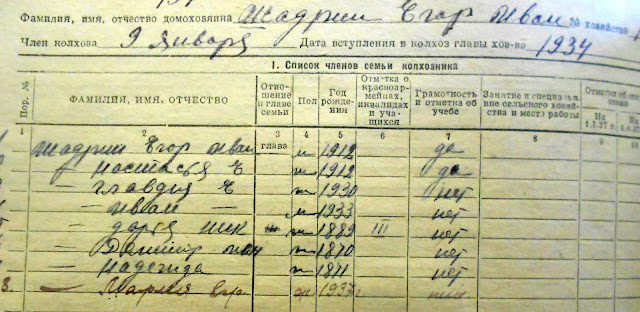 Фамилия, имя, отчество домохозяина Жадрин Егор Иван № хозяйства
Член колхоза 9 Января Дата вступления в колхоз главы хоз-ва 1934
I. Список членов семьи колхозника
Пор. № ФАМИЛИЯ, ИМЯ, ОТЧЕСТВО Отношение к главе семьи Пол Год рождения Отметка о красноармейцах, инвалидах и учащихся Грамотность и отметка об учебе Занятие и специальн. вне сельского хозяйства и место работы На 1.1.37 г.
1 2 3 4 5 6 7 8 9 10
Жадрин Егор Иван глава м 1912 да
— Настасья Е ж 1912 да
— Главдия Е ж 1930 нет
— Иван — м 1933 нет
— Дарья Ник ж 1889 III нет
— 1870 нет
— Надежда ж 1871 нет
8. — Мария Егр ж